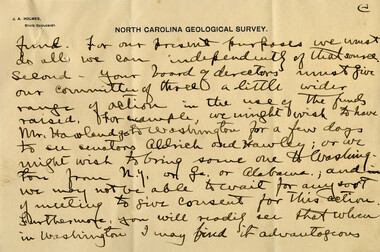 J. A. HOLMES,
STATE GEOLOGIST.
NORTH CAROLINA GEOLOGICAL SURVEY.
fund. For our present purposes we must
do all we can independently of that source
Second - your board of directors must give
our committee of three a little wider
range of action in the use of the funds
raised. For example, we might wish to have
Mr. go to Washington for a few days
to see senators Aldrich and Hawley; or we
might wish to bring some one to Washing-
ton from N.Y. or Ga. or Alabama; and
we may not be able to wait for any sort
of meeting to give consent for this action.
Furthermore, you will readily see that when
in Washington I may find it advantageous